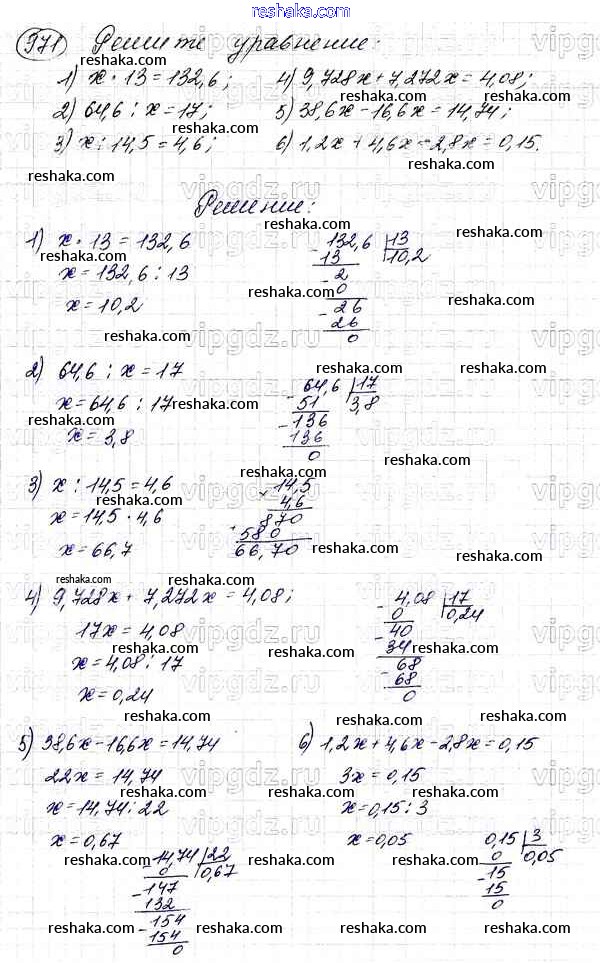 reshaka.com
971 Решите уравнение:
1) x · 13 = 132,6; 4) 9,728x + 7,272x = 4,08;
2) 64,6 : x = 17; 5) 38,6x - 16,6x = 14,74;
3) x : 14,5 = 4,6; 6) 1,2x + 4,6x - 2,8x = 0,15.
Решение:
1) x · 13 = 132,6
x = 132,6 : 13
x = 10,2
132,6 | 13
13 | 10,2
- 2
0
- 26
26
0
2) 64,6 : x = 17
x = 64,6 : 17
x = 3,8
- 64,6 | 17
51 | 3,8
- 136
136
0
3) x : 14,5 = 4,6
x = 14,5 · 4,6
x = 66,7
× 14,5
4,6
870
+ 580
66,70
4) 9,728x + 7,272x = 4,08;
17x = 4,08
x = 4,08 : 17
x = 0,24
- 4,08 | 17
0 | 0,24
- 40
34
- 68
68
0
5) 38,6x - 16,6x = 14,74
22x = 14,74
x = 14,74 : 22
x = 0,67
- 14,74 | 22
0 | 0,67
- 147
132
- 154
154
0
6) 1,2x + 4,6x - 2,8x = 0,15
3x = 0,15
x = 0,15 : 3
x = 0,05
0,15 | 3
0 | 0,05
- 15
15
0
vipgdz.ru